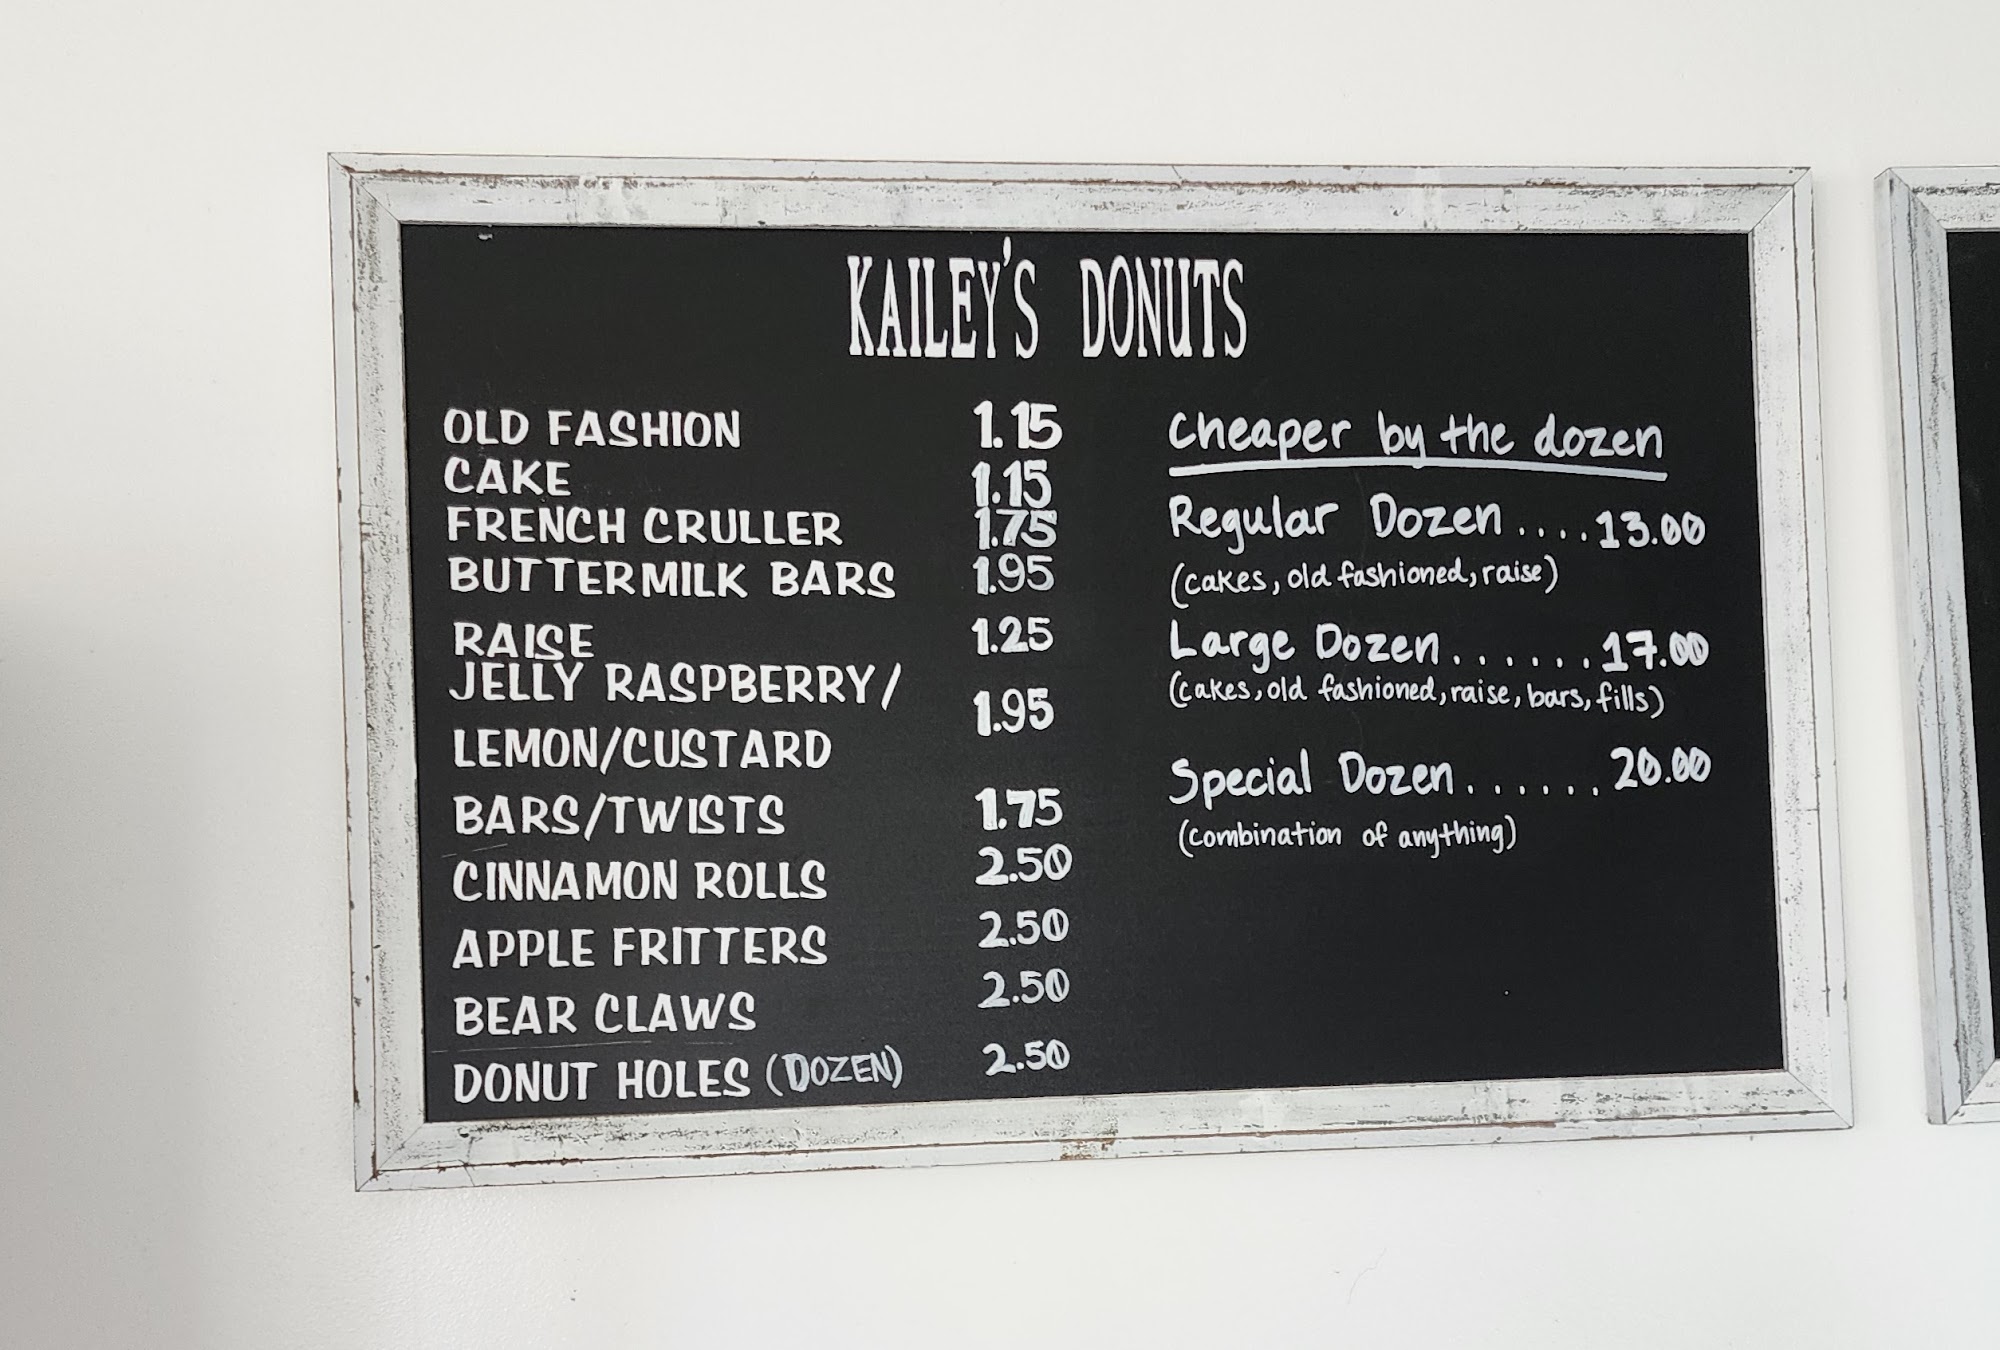 KAILEY'S DONUTS
OLD FASHION 1.15
CAKE 1.15
FRENCH CRULLER 1.75
BUTTERMILK BARS 1.95
RAISE 1.25
JELLY RASPBERRY/
LEMON/CUSTARD 1.95
BARS/TWISTS 1.75
CINNAMON ROLLS 2.50
APPLE FRITTERS 2.50
BEAR CLAWS 2.50
DONUT HOLES (DOZEN) 2.50
Cheaper by the dozen
Regular Dozen....13.00
(cakes, old fashioned, raise)
Large Dozen......17.00
(cakes, old fashioned, raise, bars, fills)
Special Dozen......20.00
(combination of anything)